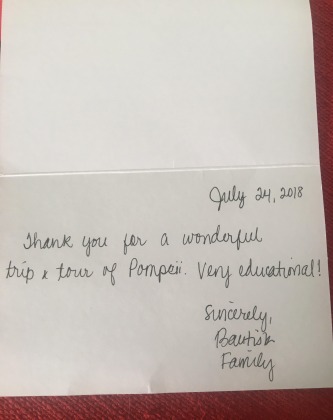 July 24, 2018
Thank you for a wonderful
trip & tour of Pompeii. Very educational!
Sincerely,
Bautista
Family